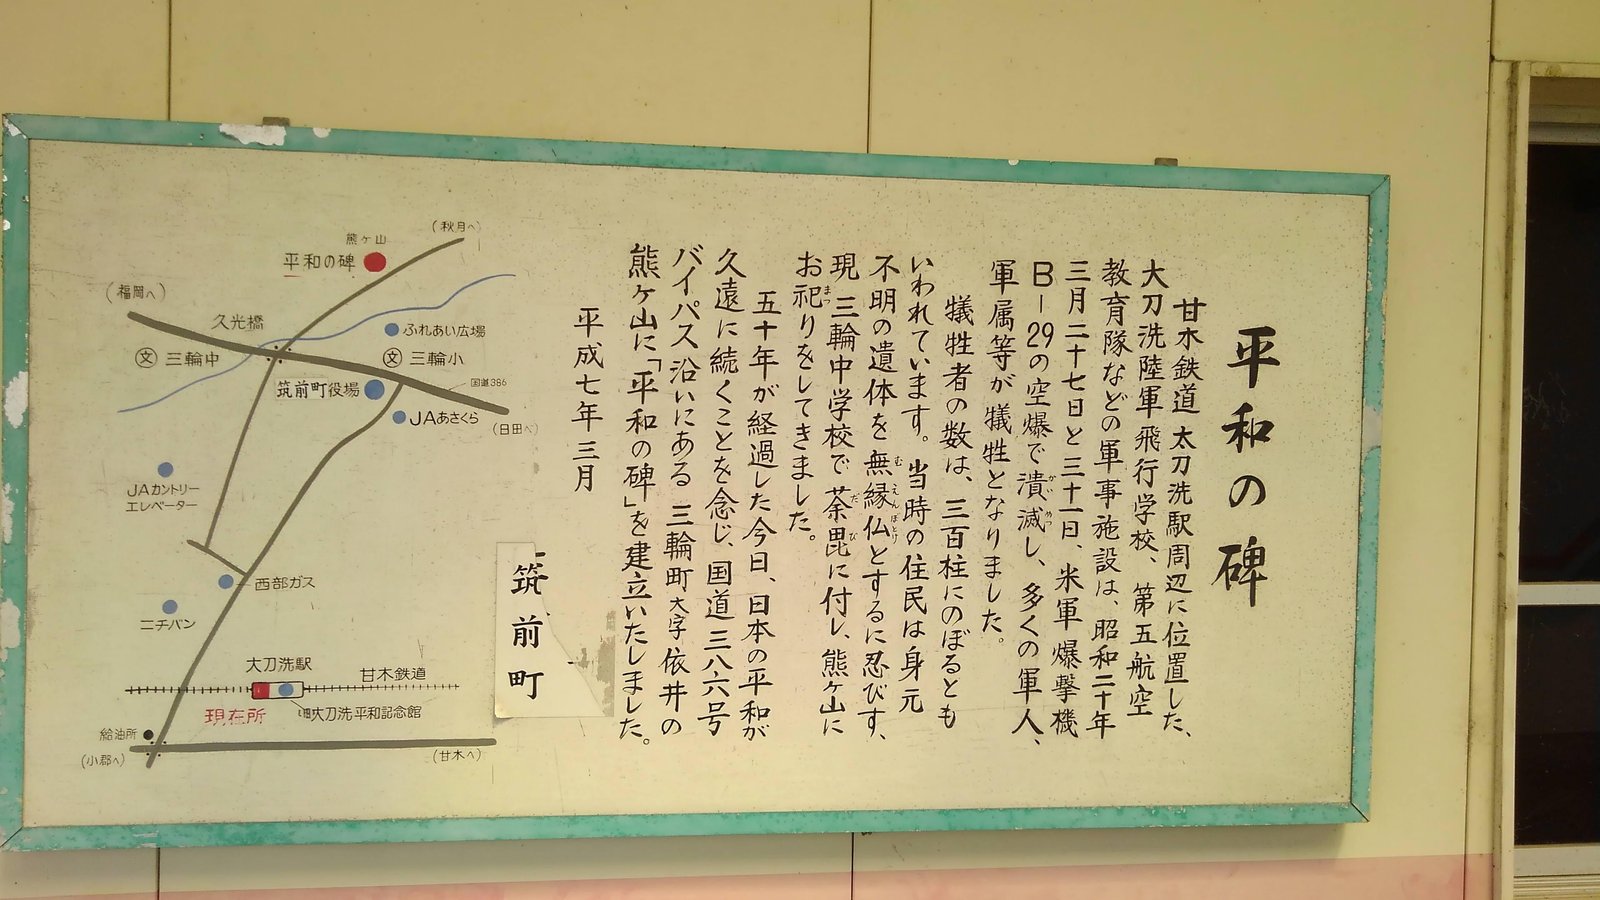 平和の碑
甘木鉄道 太刀洗駅周辺に位置した、
大刀洗陸軍飛行学校、第五航空
教育隊などの軍事施設は、昭和二十年
三月二十七日と三十一日、米軍爆撃機
B-29の空爆で潰滅し、多くの軍人、
軍属等が犠牲となりました。
犠牲者の数は、三百柱にのぼるとも
いわれています。当時の住民は身元
不明の遺体を無縁仏とするに忍びず、
現 三輪中学校で荼毘に付し、熊ヶ山に
お祀りをしてきました。
五十年が経過した今日、日本の平和が
久遠に続くことを念じ、国道三八六号
バイパス沿いにある 三輪町大字依井の
熊ヶ山に「平和の碑」を建立いたしました。
平成七年三月
筑前町
(秋月へ)
熊ヶ山
平和の碑
(福岡へ)
久光橋
ふれあい広場
文 三輪中
文 三輪小
国道386
筑前町役場
JAあさくら
(日田へ)
JAカントリー
エレベーター
西部ガス
ニチバン
太刀洗駅
甘木鉄道
現在所
大刀洗平和記念館
給油所
(小郡へ)
(甘木へ)